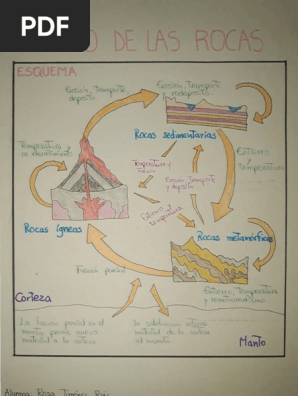 PDF
O DE LAS ROCAS
ESQUEMA
Erosión, transporte,
depósito
Erosión, transporte
y redepósito
Rocas sedimentarias
Temperatura y
Entierro
y temperatura
Temperatura y
fusión
Erosión, transporte
y depósito
Entierro y
temperatura
Rocas ígneas
Rocas metamórficas
Fusión parcial
Entierro, temperatura
y
Corteza
La fusión parcial en el
manto
material a la corteza
La subducción retorna
material de la corteza
al manto
Manto
Alumna: Rosa Jiménez